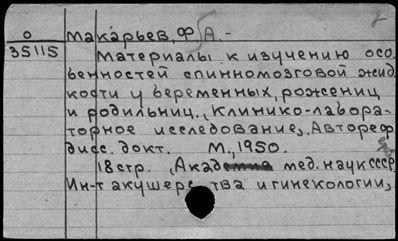 О Макарьев, Ф А.-
35115 Материалы к изучению осо-
бенностей спинномозговой жид
кости у беременных, рожениц
и родильниц. Клинико-лабора-
торное исследование. Автореф
дисс. докт. М., 1950.
18 стр. Академия мед. наук СССР
Ин-т акушерства и гинекологии,